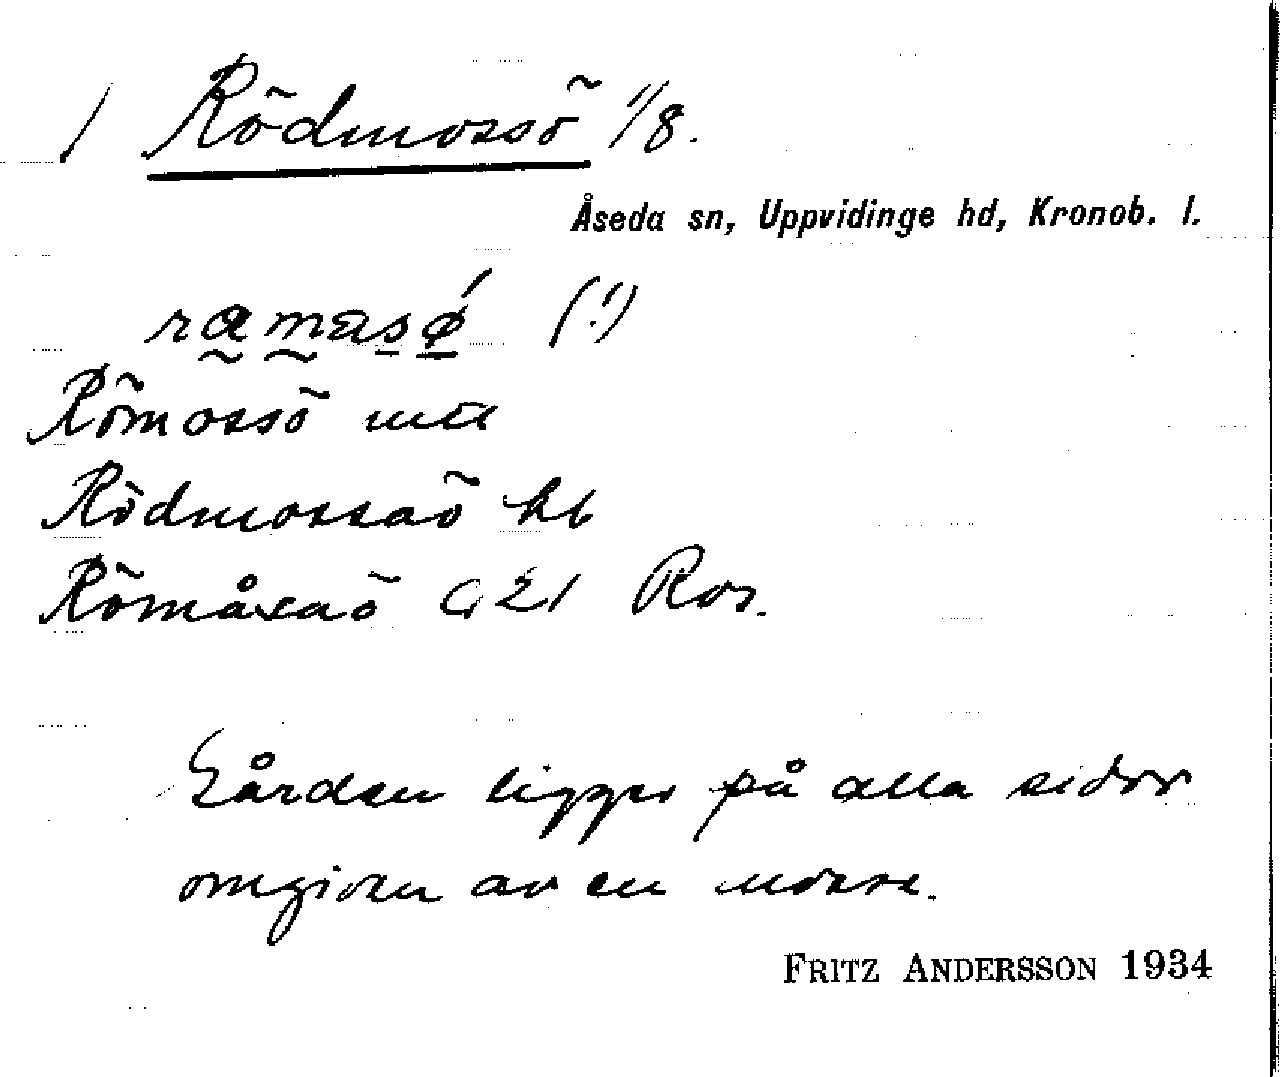 / Rödmossö 1/8.
Åseda sn, Uppvidinge hd, Kronob. l.
(!)
Römossö
Rödmossaö hb
Römåsaö G 21 Ros.
Gården ligger på alla sidor
omgiven av en mosse.
FRITZ ANDERSSON 1934